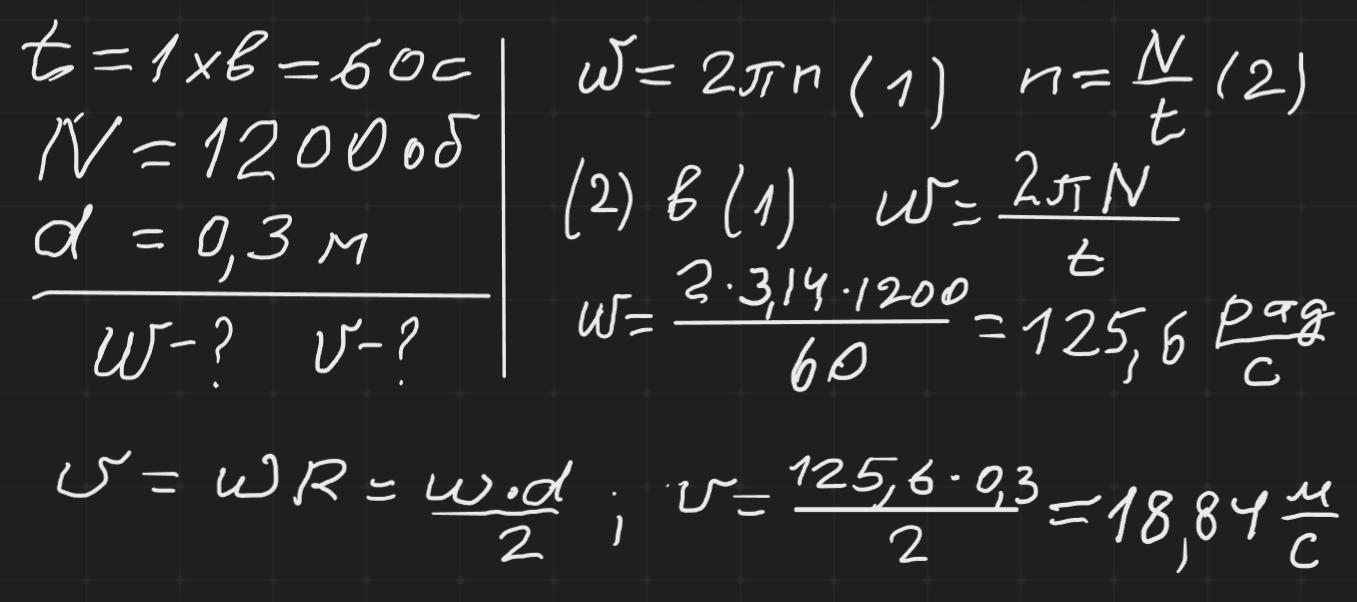 t = 1 хв = 60с
N = 1200 об
d = 0,3 м
ω - ? υ - ?
ω = 2πn (1) n = N/t (2)
(2) в (1) ω = 2πN/t
ω = 2·3,14·1200/60 = 125,6 рад/с
υ = ωR = ω·d/2 ; υ = 125,6·0,3/2 = 18,84 м/с